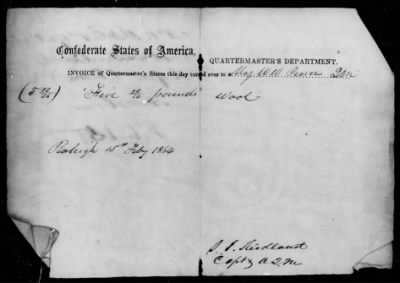 Confederate States of America,
QUARTERMASTER'S DEPARTMENT.
INVOICE of Quartermaster's Stores this day turned over to Maj W. W. Peirce QM
"Five pounds" Wool
Raleigh 15th Feby 1864
Capt & A.Q.M